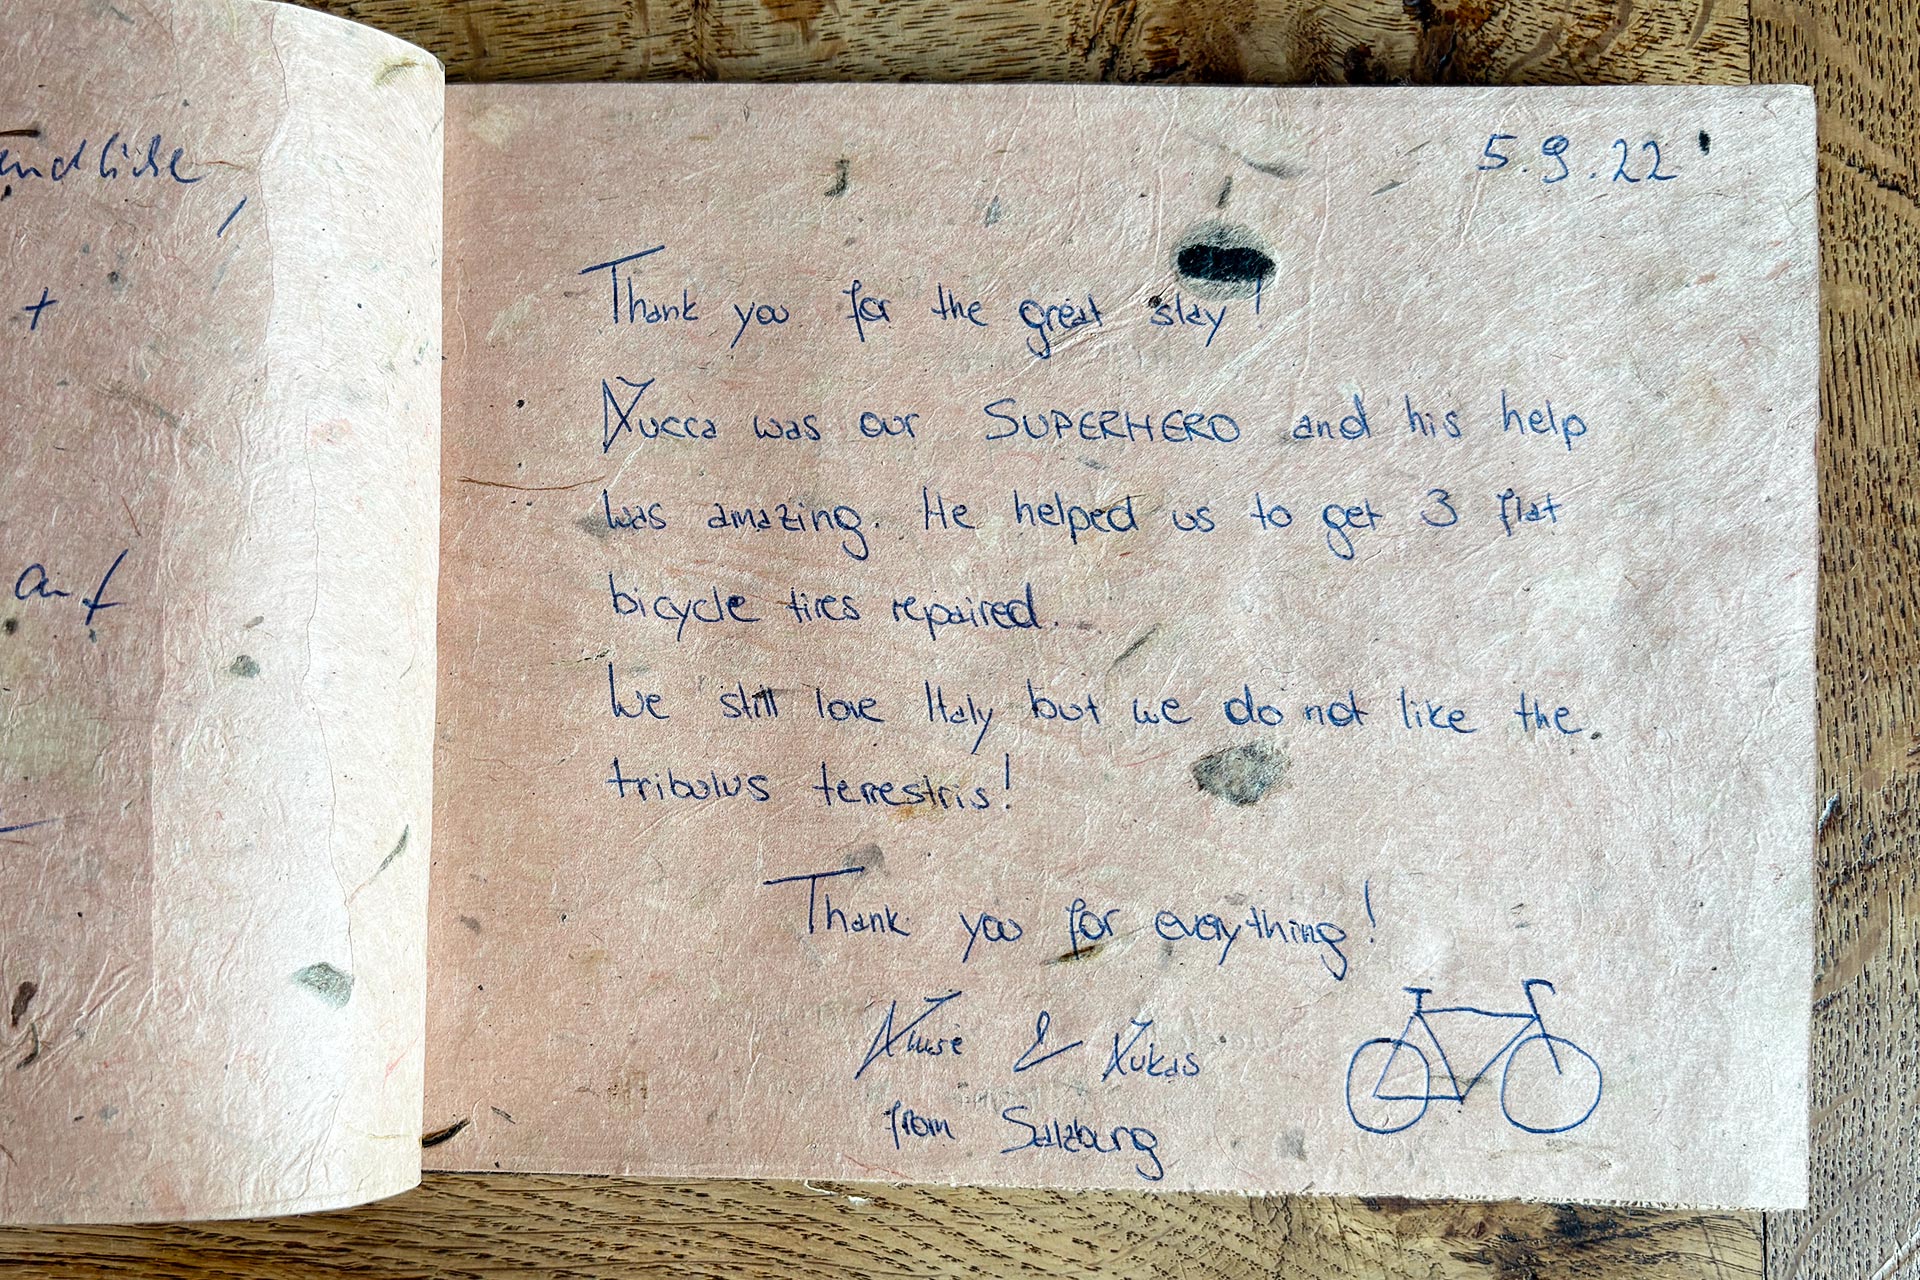 +
auf
5.9.22
Thank you for the great stay!
Lucca was our SUPERHERO and his help
was amazing. He helped us to get 3 flat
bicycle tires repaired.
We still love Italy but we do not like the
tribulus terrestris!
Thank you for everything!
Luise & Lukas
from Salzburg